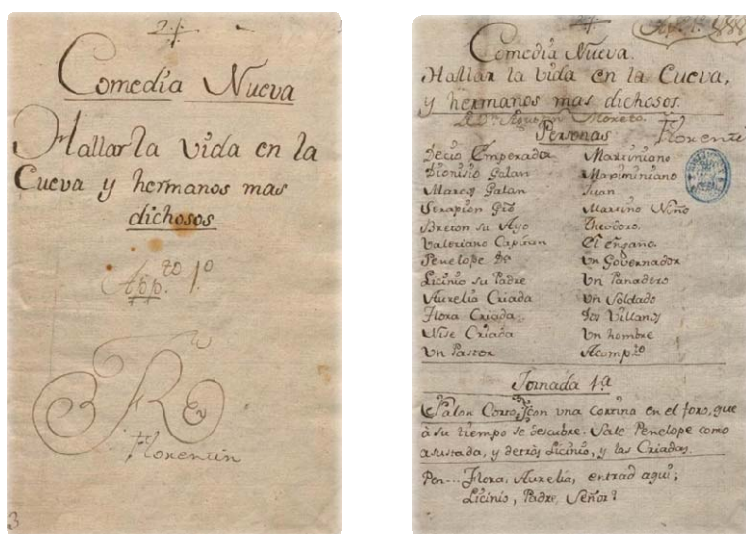 Comedia Nueva
Hallar la vida en la
Cueva y hermanos mas
dichosos
App.to 1º
Florentin
3
Comedia Nueva.
Hallar la vida en la Cueva,
y hermanos mas dichosos.
De Dn Agustin Moreto.
Personas
Decio Emperador
Dionisio Galan
Marco Galan
Serapion Gºº
Breton su Ayo
Valeriano Capitan
Penelope Dª
Licinio su Padre
Aurelia Criada
Flora Criada
Nise Criada
Un Pastor
Maximiano
Juan
Martino Niño
Theodoro.
El engaño.
Un Governador
Un Panadero
Un Soldado
Dos Villanos
Un hombre
Acompto
Jornada 1ª
Salon Corto, con una cortina en el foro, que
à su tiempo se descubre. Sale Penelope como
asustada, y detrás Licinio, y las Criadas.
Pen... Flora, Aurelia, entrad aqui;
Licinio, Padre, Señor?